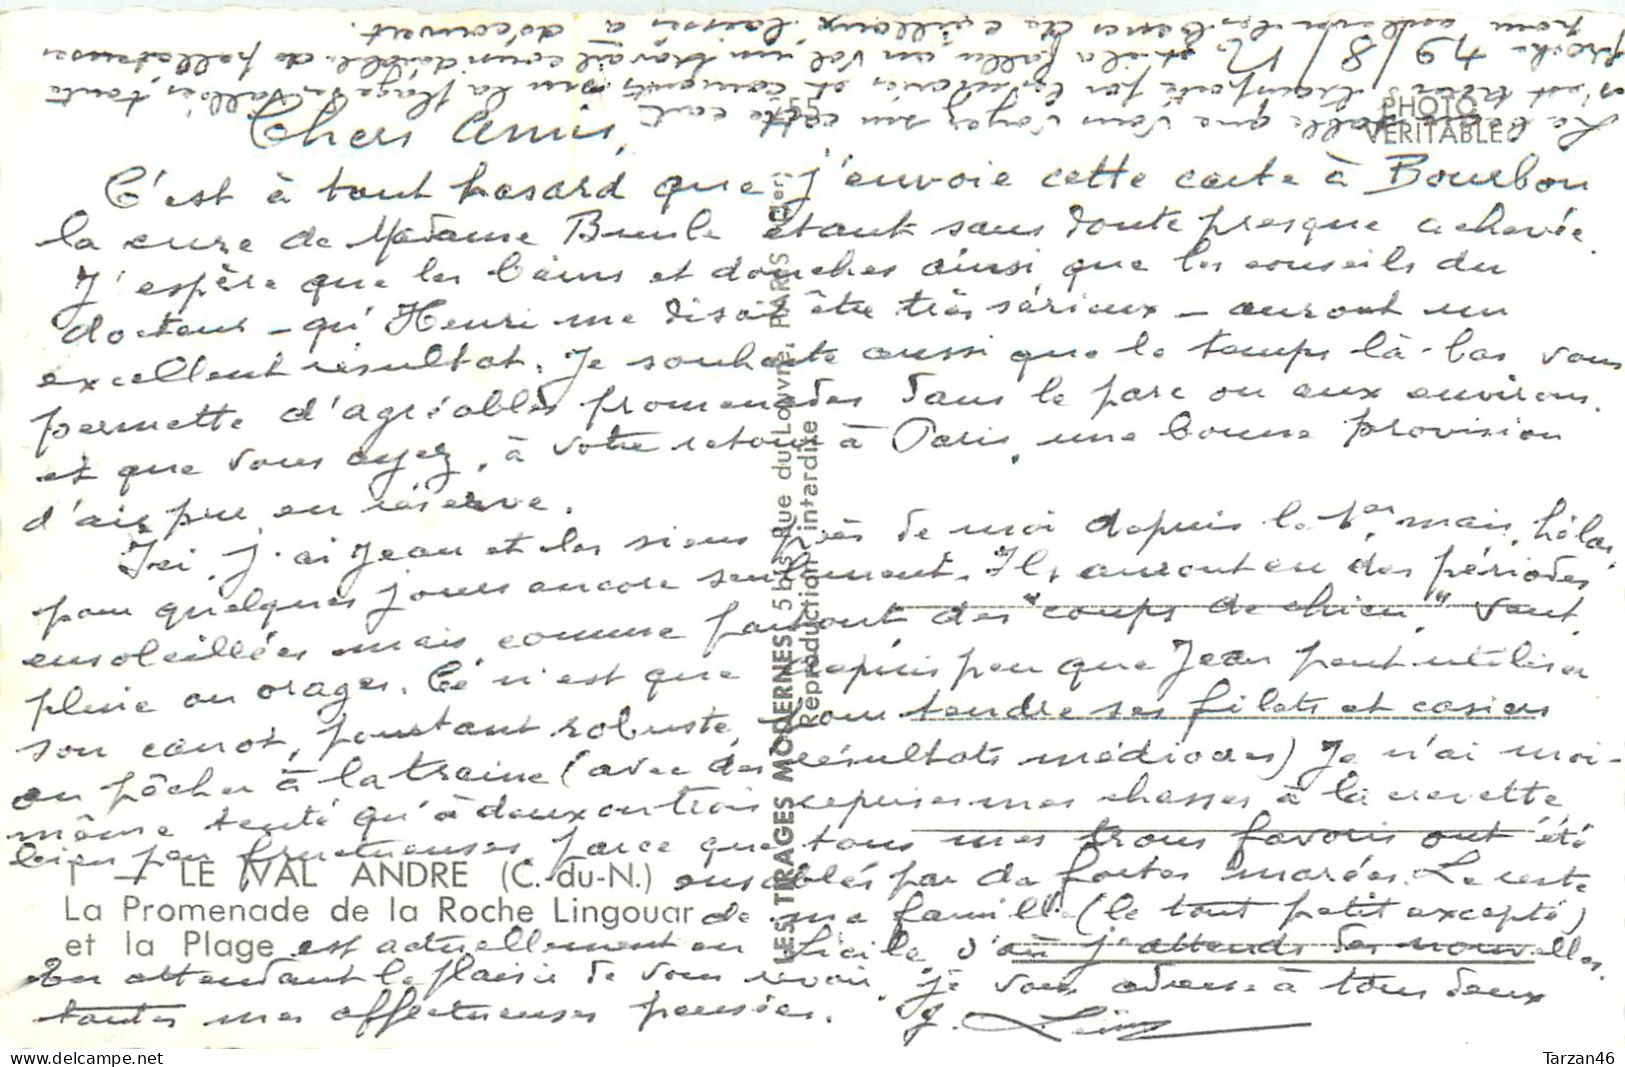 Chers Amis,
C'est à tout hasard que j'envoie cette carte à Bourbon
la cure de Madame Brule étant sans doute presque achevée.
J'espère que les bains et douches ainsi que les conseils du
docteur - qu'Henri me disait être très sérieux - auront un
excellent résultat. Je souhaite aussi que le temps là-bas vous
permette d'agréables promenades dans le parc ou aux environs.
et que vous ayez, à votre retour à Paris, une bonne provision
d'air pur en réserve.
Ici, j'ai Jean et les siens près de moi depuis le 1er mai, hélas,
pour quelques jours encore seulement. Ils auront eu des périodes
ensoleillées mais comme partout des "coups de chien", vent,
pluie ou orages. Ce n'est que depuis peu que Jean peut utiliser
son canot, pourtant robuste, pour tendre ses filets et casiers
ou pêcher à la traîne (avec des résultats médiocres) Je n'ai moi-
même tenté qu'à deux ou trois reprises mes chasses à la crevette
bien peu fructueuses parce que tous mes trous favoris ont été
ensablés par de fortes marées. Le reste
de ma famille (le tout petit excepté)
est actuellement en Sicile d'où j'attends des nouvelles.
En attendant le plaisir de vous revoir, je vous adresse à tous deux
toutes mes affectueuses pensées.
La belle que vous voyez sur cette carte
s'est trouvée transportée par les marées et sur la plage des Vallées, toute
proche 49/8/12 et il a fallu un travail considérable de pelleteuses
pour enlever les bancs de cailloux laissés à découvert.
1 — LE VAL ANDRE (C.-du-N.)
La Promenade de la Roche Lingouar
et la Plage
LES TIRAGES MODERNES 5 bis, Rue du Louvre, PARIS
Reproduction interdite
PHOTO
VERITABLE
Tarzan46